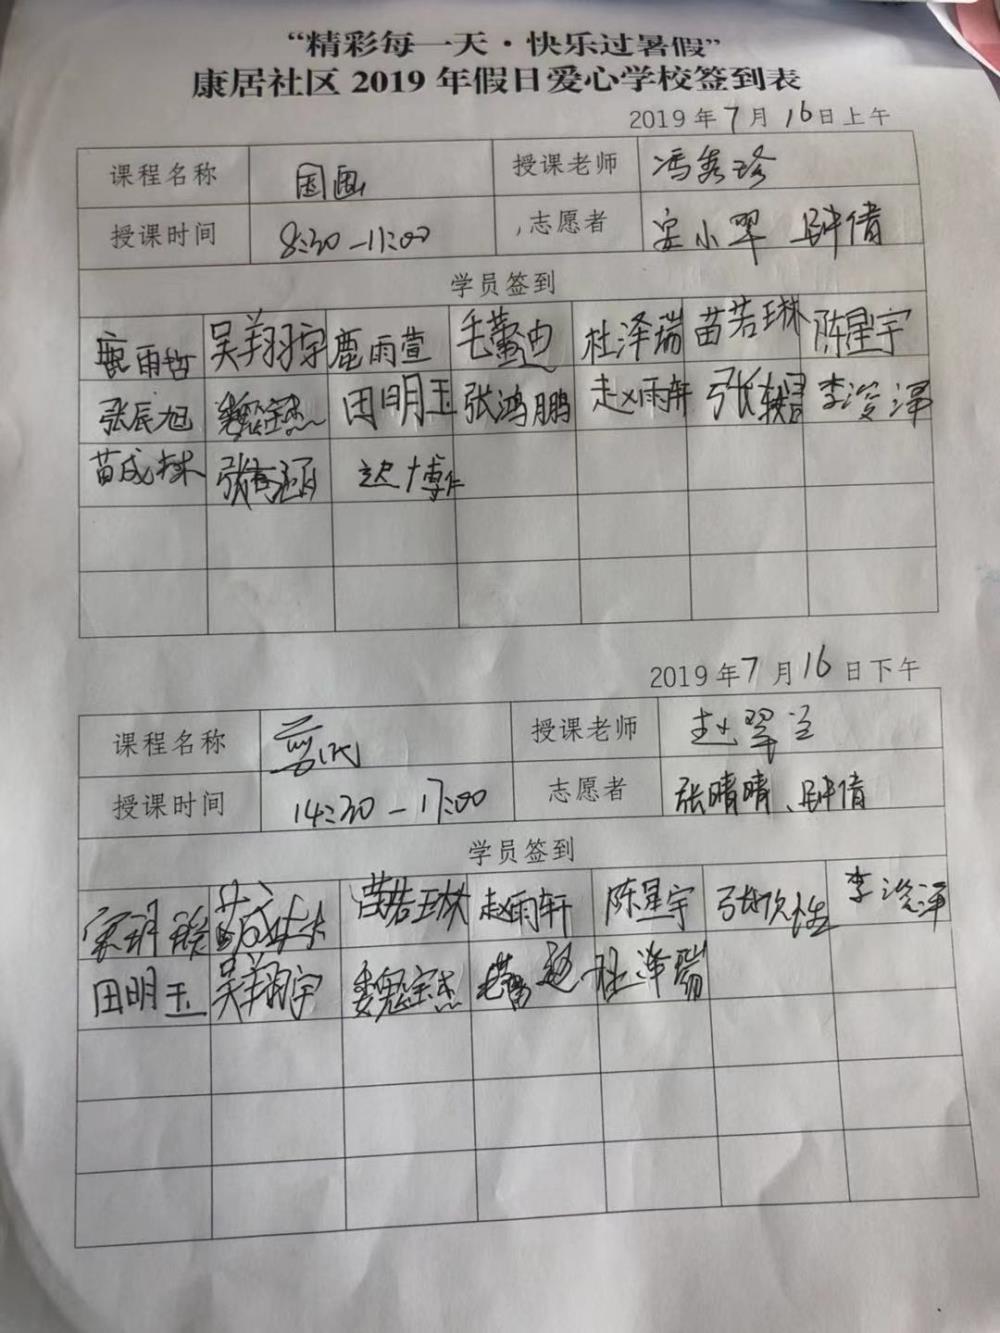 “精彩每一天·快乐过暑假”
康居社区 2019 年假日爱心学校签到表
2019 年 7 月 16 日上午
课程名称 国画 授课老师 冯秀珍
授课时间 8:30-11:00 志愿者 安小翠 钟倩
学员签到
鹿雨哲 吴翔羽宇 鹿雨萱 杜泽瑞 苗若琳 陈星宇
张辰旭 魏宝杰 田明玉 张鸿鹏 赵雨轩 李浚泽
苗成林 迟博仁
2019 年 7 月 16 日下午
课程名称 剪纸 授课老师 赵翠兰
授课时间 14:30-17:00 志愿者 张晴晴、钟倩
学员签到
苗成林 苗若琳 赵雨轩 陈星宇 李浚泽
田明玉 吴翔羽宇 魏宝杰 杜泽瑞